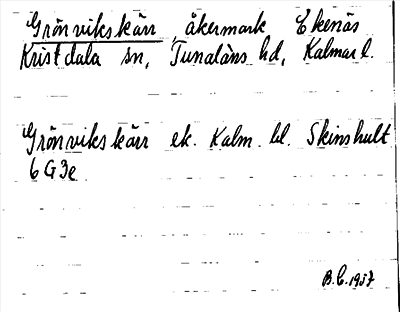 Grönvikskärr åkermark Ekenäs
Kristdala sn, Tunaläns hd, Kalmar l.
Grönvikskärr ek. Kalm. bl. Skinshult
6 G 3e
B.C. 1957